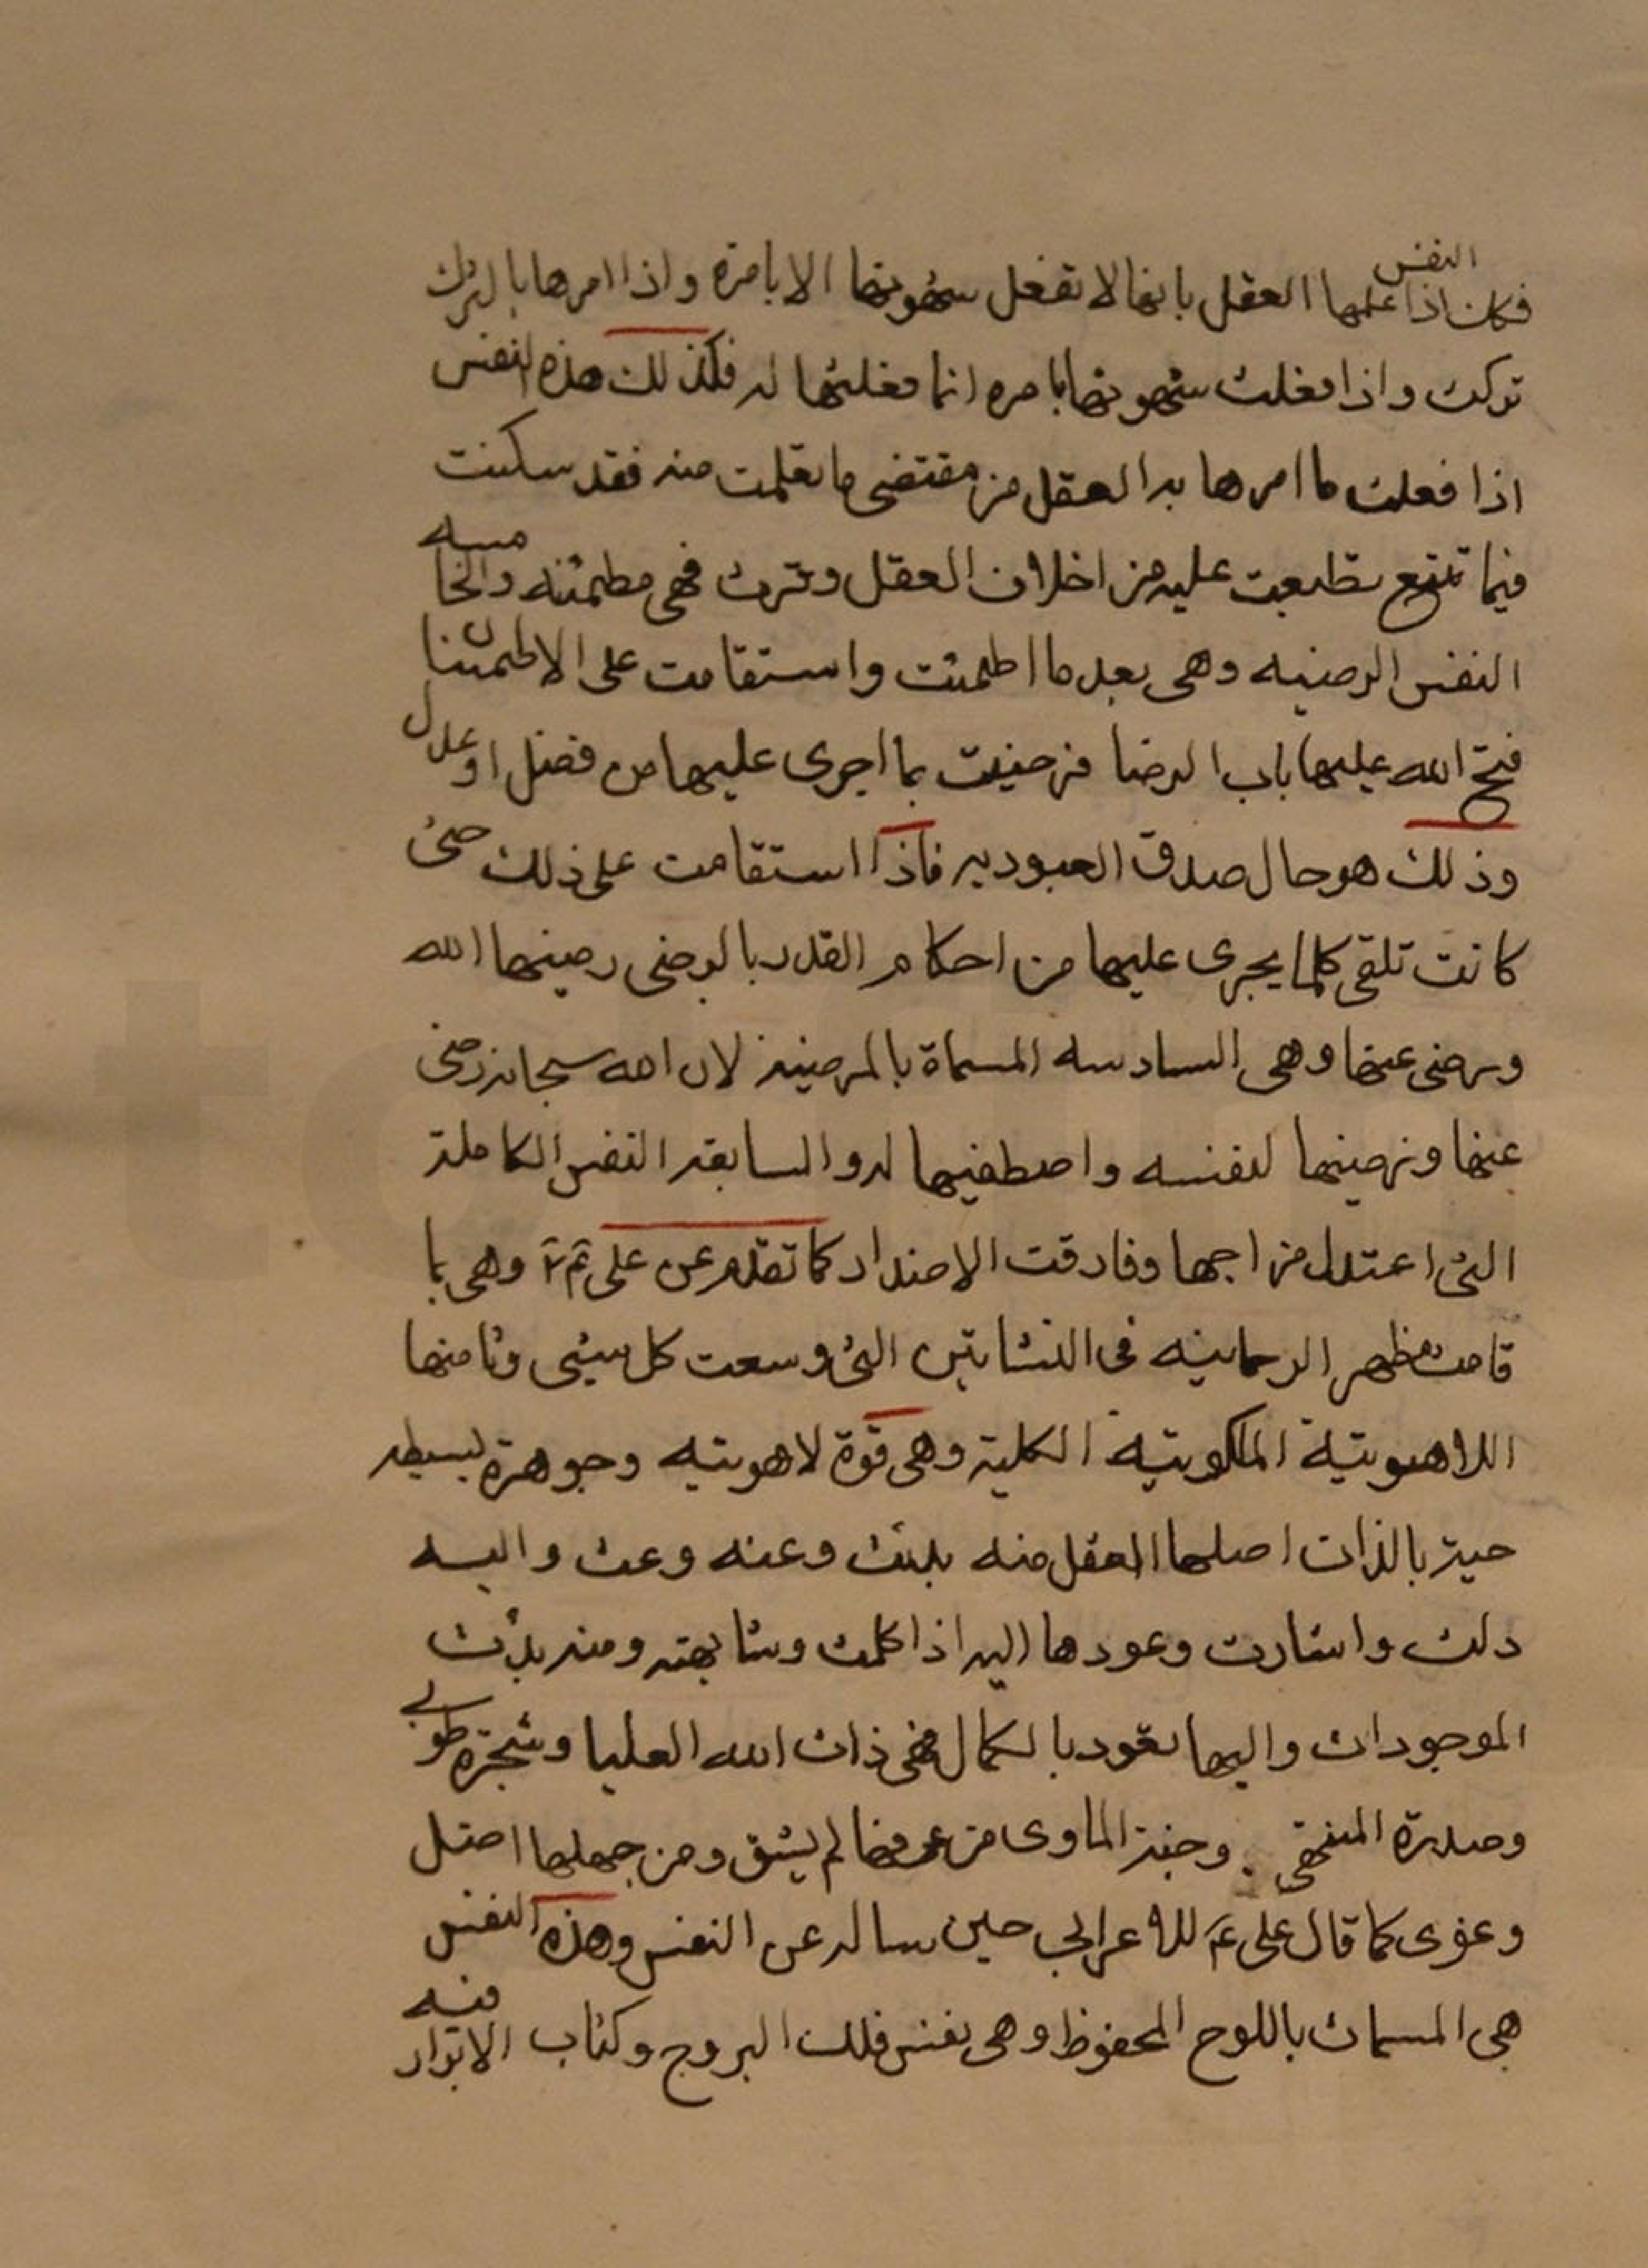 النفس
فكان اذا علمها العقل بانها لا تفعل شهوتها الا بامره واذا امرها بالترك
تركت واذا فعلت شهوتها بامره انما فعلتها له فكذلك هذه النفس
اذا فعلت ما امرها به العقل من مقتضى ما تعلمت منه فقد سكنت
فيما تطبعت عليه من اخلاق العقل وقرت فهي مطمئنه والخامسه
النفس الرضيه وهي بعد ما اطمئنت واستقامت على الاطمئنان
فتح الله عليها باب الرضا فرضيت بما اجرى عليها من فضل او عدل
وذلك هو حال صدق العبوديه فاذا استقامت على ذلك حتى
كانت تلقى كلما يجرى عليها من احكام القدر بالرضى رضيها الله
ورضى عنها وهي السادسه المسماة بالمرضيه لان الله سبحانه رضى
عنها ورضيها لنفسه واصطفيها له والسابعه النفس الكاملة
التي اعتدل مزاجها وفارقت الاضداد كما تقدم عن على ع م وهي با
قامت مظهر الرحمانيه في النشاتين التي وسعت كل شيئ وثامنها
اللاهوتية الملكوتية الكلية وهي قوة لاهوتيه وجوهرة بسيطه
حية بالذات اصلها العقل منه بدئت وعنه وعت واليه
دلت واشارت وعودها اليه اذا كملت وشابهته ومنه بدأت
الموجودات واليها تعود بالكمال فهي ذات الله العليا وشجرة طوبى
وصدرة المنتهى وجنة الماوى من عرفها لم يشق ومن جهلها اضل
وغوى كما قال على ع للاعرابي حين ساله عن النفس وهذه النفس
هي المسمات باللوح المحفوظ وهي نفس فلك البروج وكتاب الابرار فيه